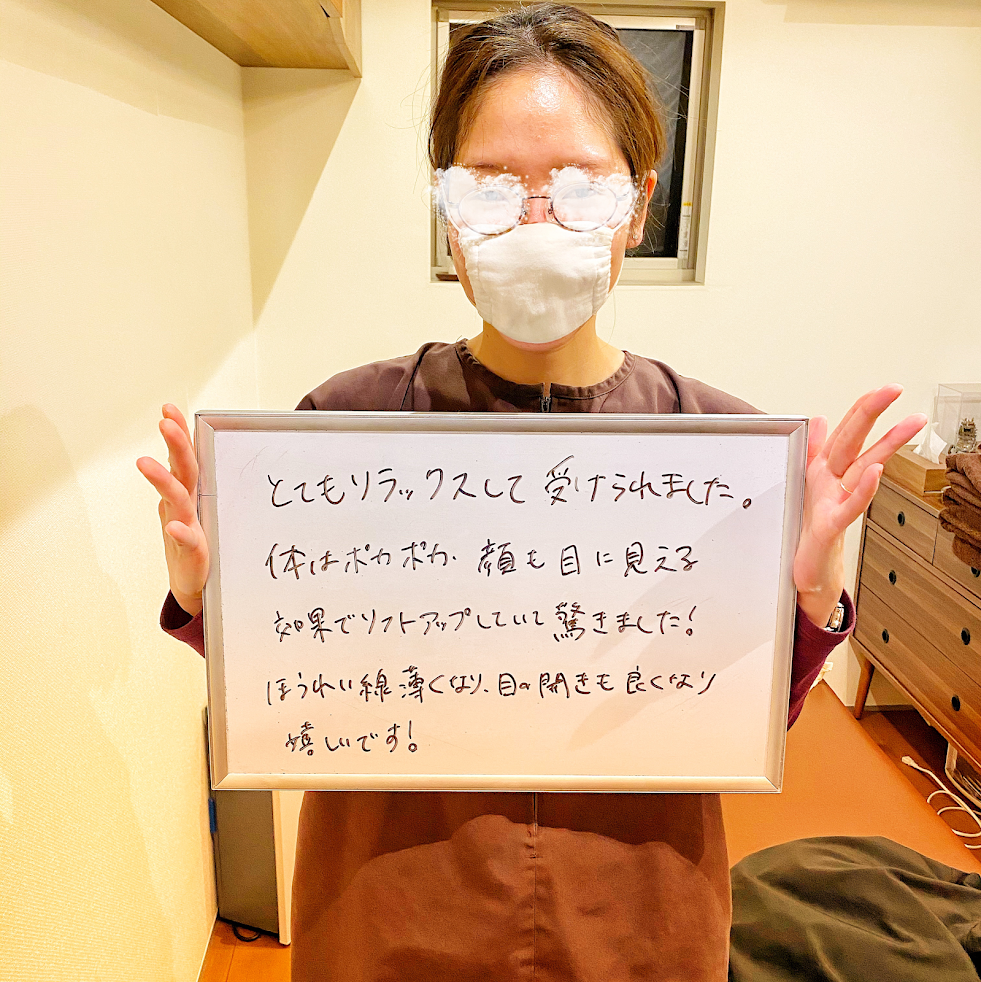 とてもリラックスして受けられました。
体はポカポカ、顔も目に見える
効果でリフトアップしていて驚きました!
ほうれい線薄くなり、目の開きも良くなり
嬉しいです!